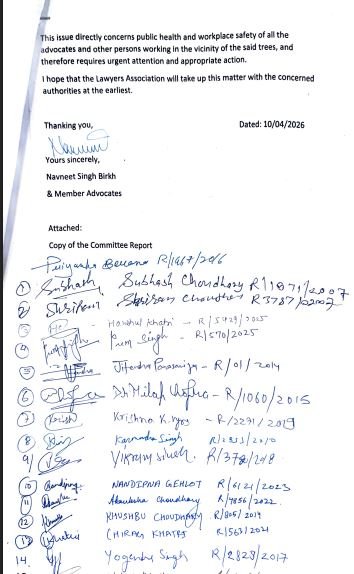 This issue directly concerns public health and workplace safety of all the
advocates and other persons working in the vicinity of the said trees, and
therefore requires urgent attention and appropriate action.
I hope that the Lawyers Association will take up this matter with the concerned
authorities at the earliest.
Thanking you, Dated: 10/04/2026
Yours sincerely,
Navneet Singh Birkh
& Member Advocates
Attached:
Copy of the Committee Report
Priyanka R/1967/2016
1 Subhash Subhash Choudhary R/1871/2007
2 Shriram Shriram Choudhary R3787/2007
3 Khatri - R/5929/2015
4 Prem Singh - R/570/2025
5 Jitendra - R/01/2014
6 Chopra - R/1060/2015
7 Krishna K. Vyas - R/2271/2019
8 Karmendra Singh
9/ Vikram Singh
10 NANDIPNA GEHLOT R/6121/2023
11 Akanksha Choudhary R/4856/2022
12 KHUSHBU CHOUDHARY R/805/2019
13 CHIRAG KHATRI R/563/2021
14. Yogendra Singh R/2828/2017